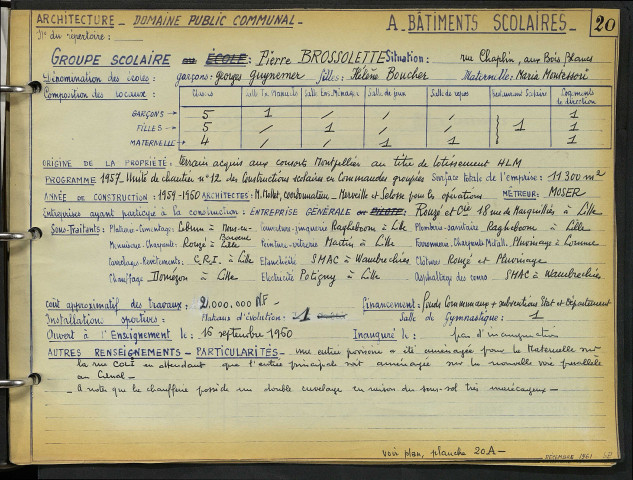 ARCHITECTURE - DOMAINE PUBLIC COMMUNAL - A - BÂTIMENTS SCOLAIRES - 20
N° du répertoire :
GROUPE SCOLAIRE ou ÉCOLE : Pierre BROSSOLETTE Situation : rue Chaplin, aux Bois Blancs
Dénomination des écoles : garçons : georges guynemer filles : Hélène Boucher Maternelle : Maria Montessori
Composition des locaux : Classes Salle Tx Manuels Salle Ens. Ménager Salle de jeux Salle de repos Restaurant Scolaire Logements de direction
GARÇONS → 5 1 / / / 1
FILLES → 5 / 1 / / 1 1
MATERNELLE → 4 / / 1 1 1
ORIGINE DE LA PROPRIÉTÉ : terrain acquis aux consorts Montpellier au titre de lotissement HLM
PROGRAMME 1957 - Unité de chantier n° 12 des Constructions scolaires en Commandes groupées Surface totale de l'emprise : 11 300 m²
ANNÉE DE CONSTRUCTION : 1959-1960 ARCHITECTES : M. Mollet, coordonnateur - Merveille et Selosse pour les opérations MÉTREUR : MOSER
Entreprises ayant participé à la construction : ENTREPRISE GÉNÉRALE : Rouzé et Cie 18 rue de Marquillies à Lille
Sous-Traitants : Plâtrerie-Cimentage : Lebrun à Mons-en-Baroeul Couverture-zinguerie Ragheboom à Lille Plomberie-sanitaire Ragheboom à Lille
Menuiserie-Charpente Rouzé à Lille Peinture-vitrerie Martin à Lille Ferronnerie, Charpente Métall. Plouvinage à Lomme
Carrelages-Revêtements : C.R.I. à Lille Etanchéité SMAC à Wambrechies Clôtures Rouzé et Plouvinage
Chauffage Domézon à Lille Electricité Potigny à Lille Asphaltage des cours SMAC à Wambrechies
coût approximatif des travaux : 2.000.000 NF - Financement : fonds Communaux + subventions Etat et Département
Installation sportives : Plateaux d'évolution : 1 Salle de Gymnastique : 1
Ouvert à l'Enseignement le : 16 septembre 1960 Inauguré le : pas d'inauguration
AUTRES RENSEIGNEMENTS - PARTICULARITÉS - une entrée provisoire a été aménagée pour la Maternelle sur
la rue Coli en attendant que l'entrée principale soit aménagée sur la nouvelle voie parallèle
au Canal -
- A noter que la chaufferie possède un double cuvelage en raison du sous-sol très marécageux -
voir plan, planche 20A -
DÉCEMBRE 1961